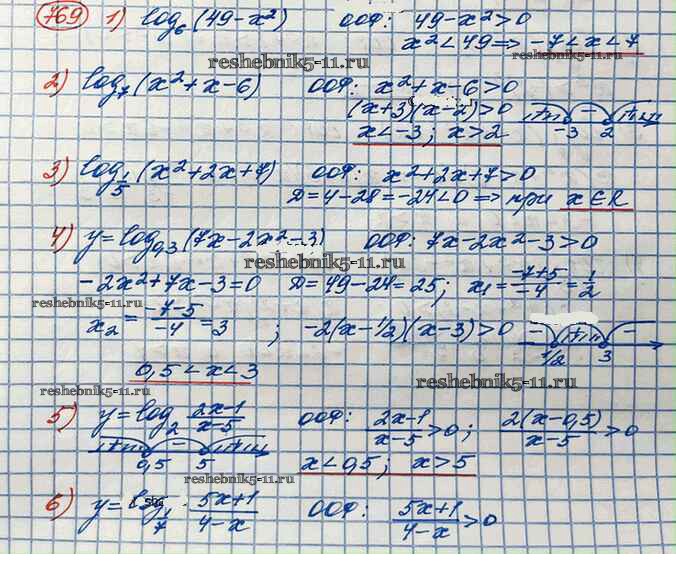 769 1) log₆(49-x²) ООФ: 49-x²>0
x²<49 => -7<x<7
reshebnik5-11.ru
2) log₇(x²+x-6) ООФ: x²+x-6>0
(x+3)(x-2)>0
x<-3; x>2 -3 2
3) log_{1/5}(x²+2x+7) ООФ: x²+2x+7>0
D=4-28=-24<0 => при x∈R
4) y=log_{0,3}(7x-2x²-3) ООФ: 7x-2x²-3>0
reshebnik5-11.ru
-2x²+7x-3=0 D=49-24=25; x₁=(-7+5)/(-4)=1/2
reshebnik5-11.ru
x₂=(-7-5)/(-4)=3; -2(x-1/2)(x-3)>0 1/2 3
0,5<x<3
reshebnik5-11.ru
reshebnik5-11.ru
5) y=log₂ (2x-1)/(x-5) ООФ: (2x-1)/(x-5)>0; 2(x-0,5)/(x-5)>0
0,5 5 x<0,5; x>5
reshebnik5-11.ru
6) y=log (5x+1)/(4-x) ООФ: (5x+1)/(4-x)>0